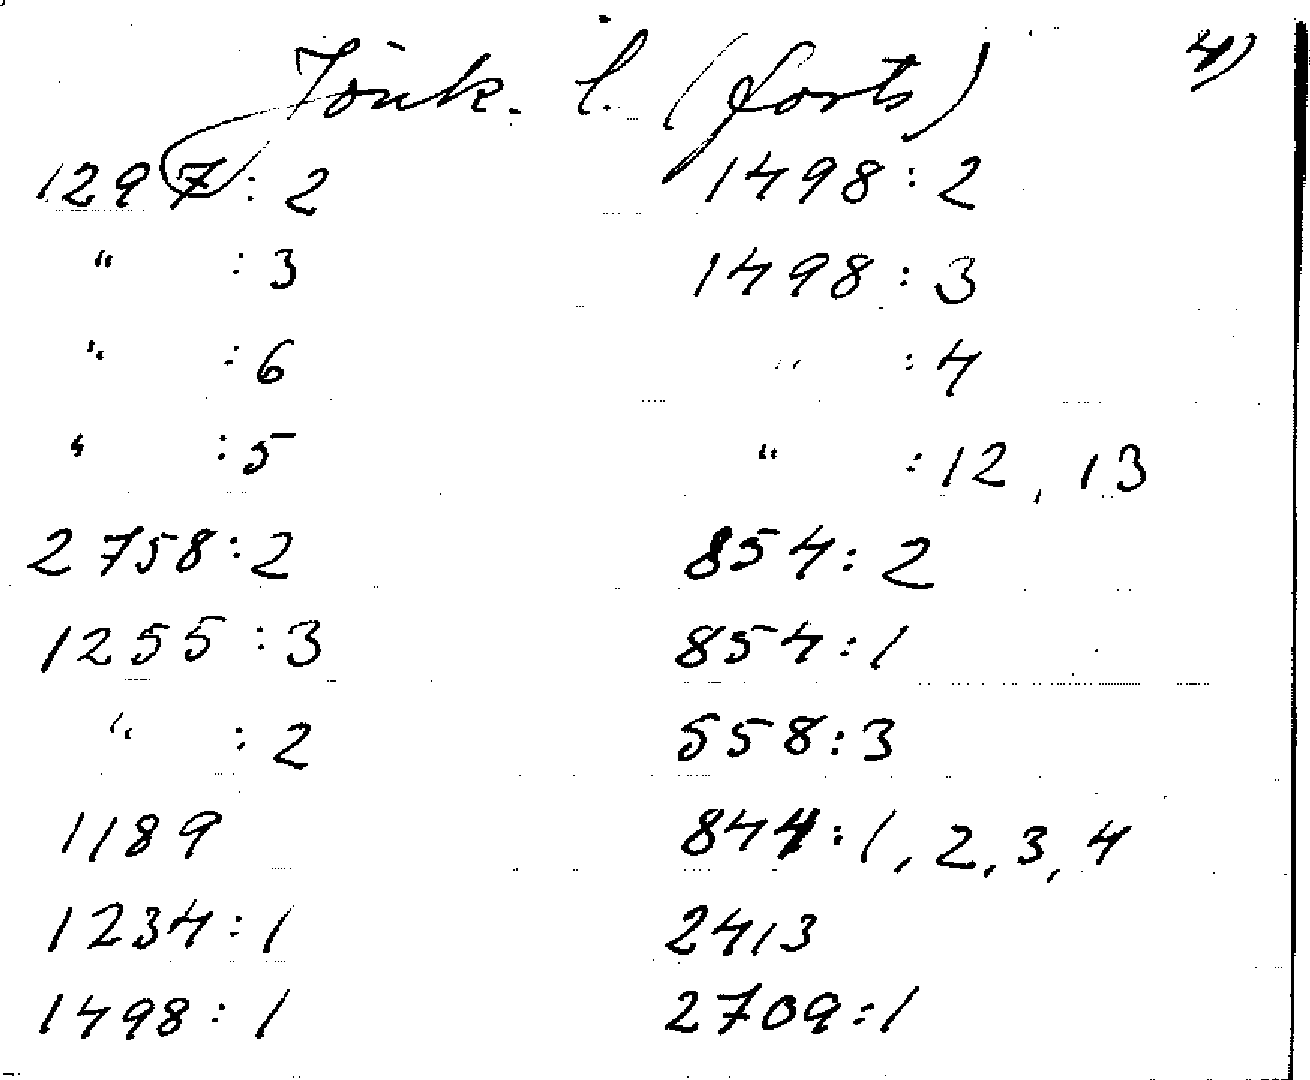 Jönk. l. (forts) 4)
1297:2
" :3
" :6
" :5
2758:2
1255:3
" :2
1189
1234:1
1498:1
1498:2
1498:3
" :4
" :12, 13
854:2
854:1
558:3
844:1, 2, 3, 4
2413
2709:1